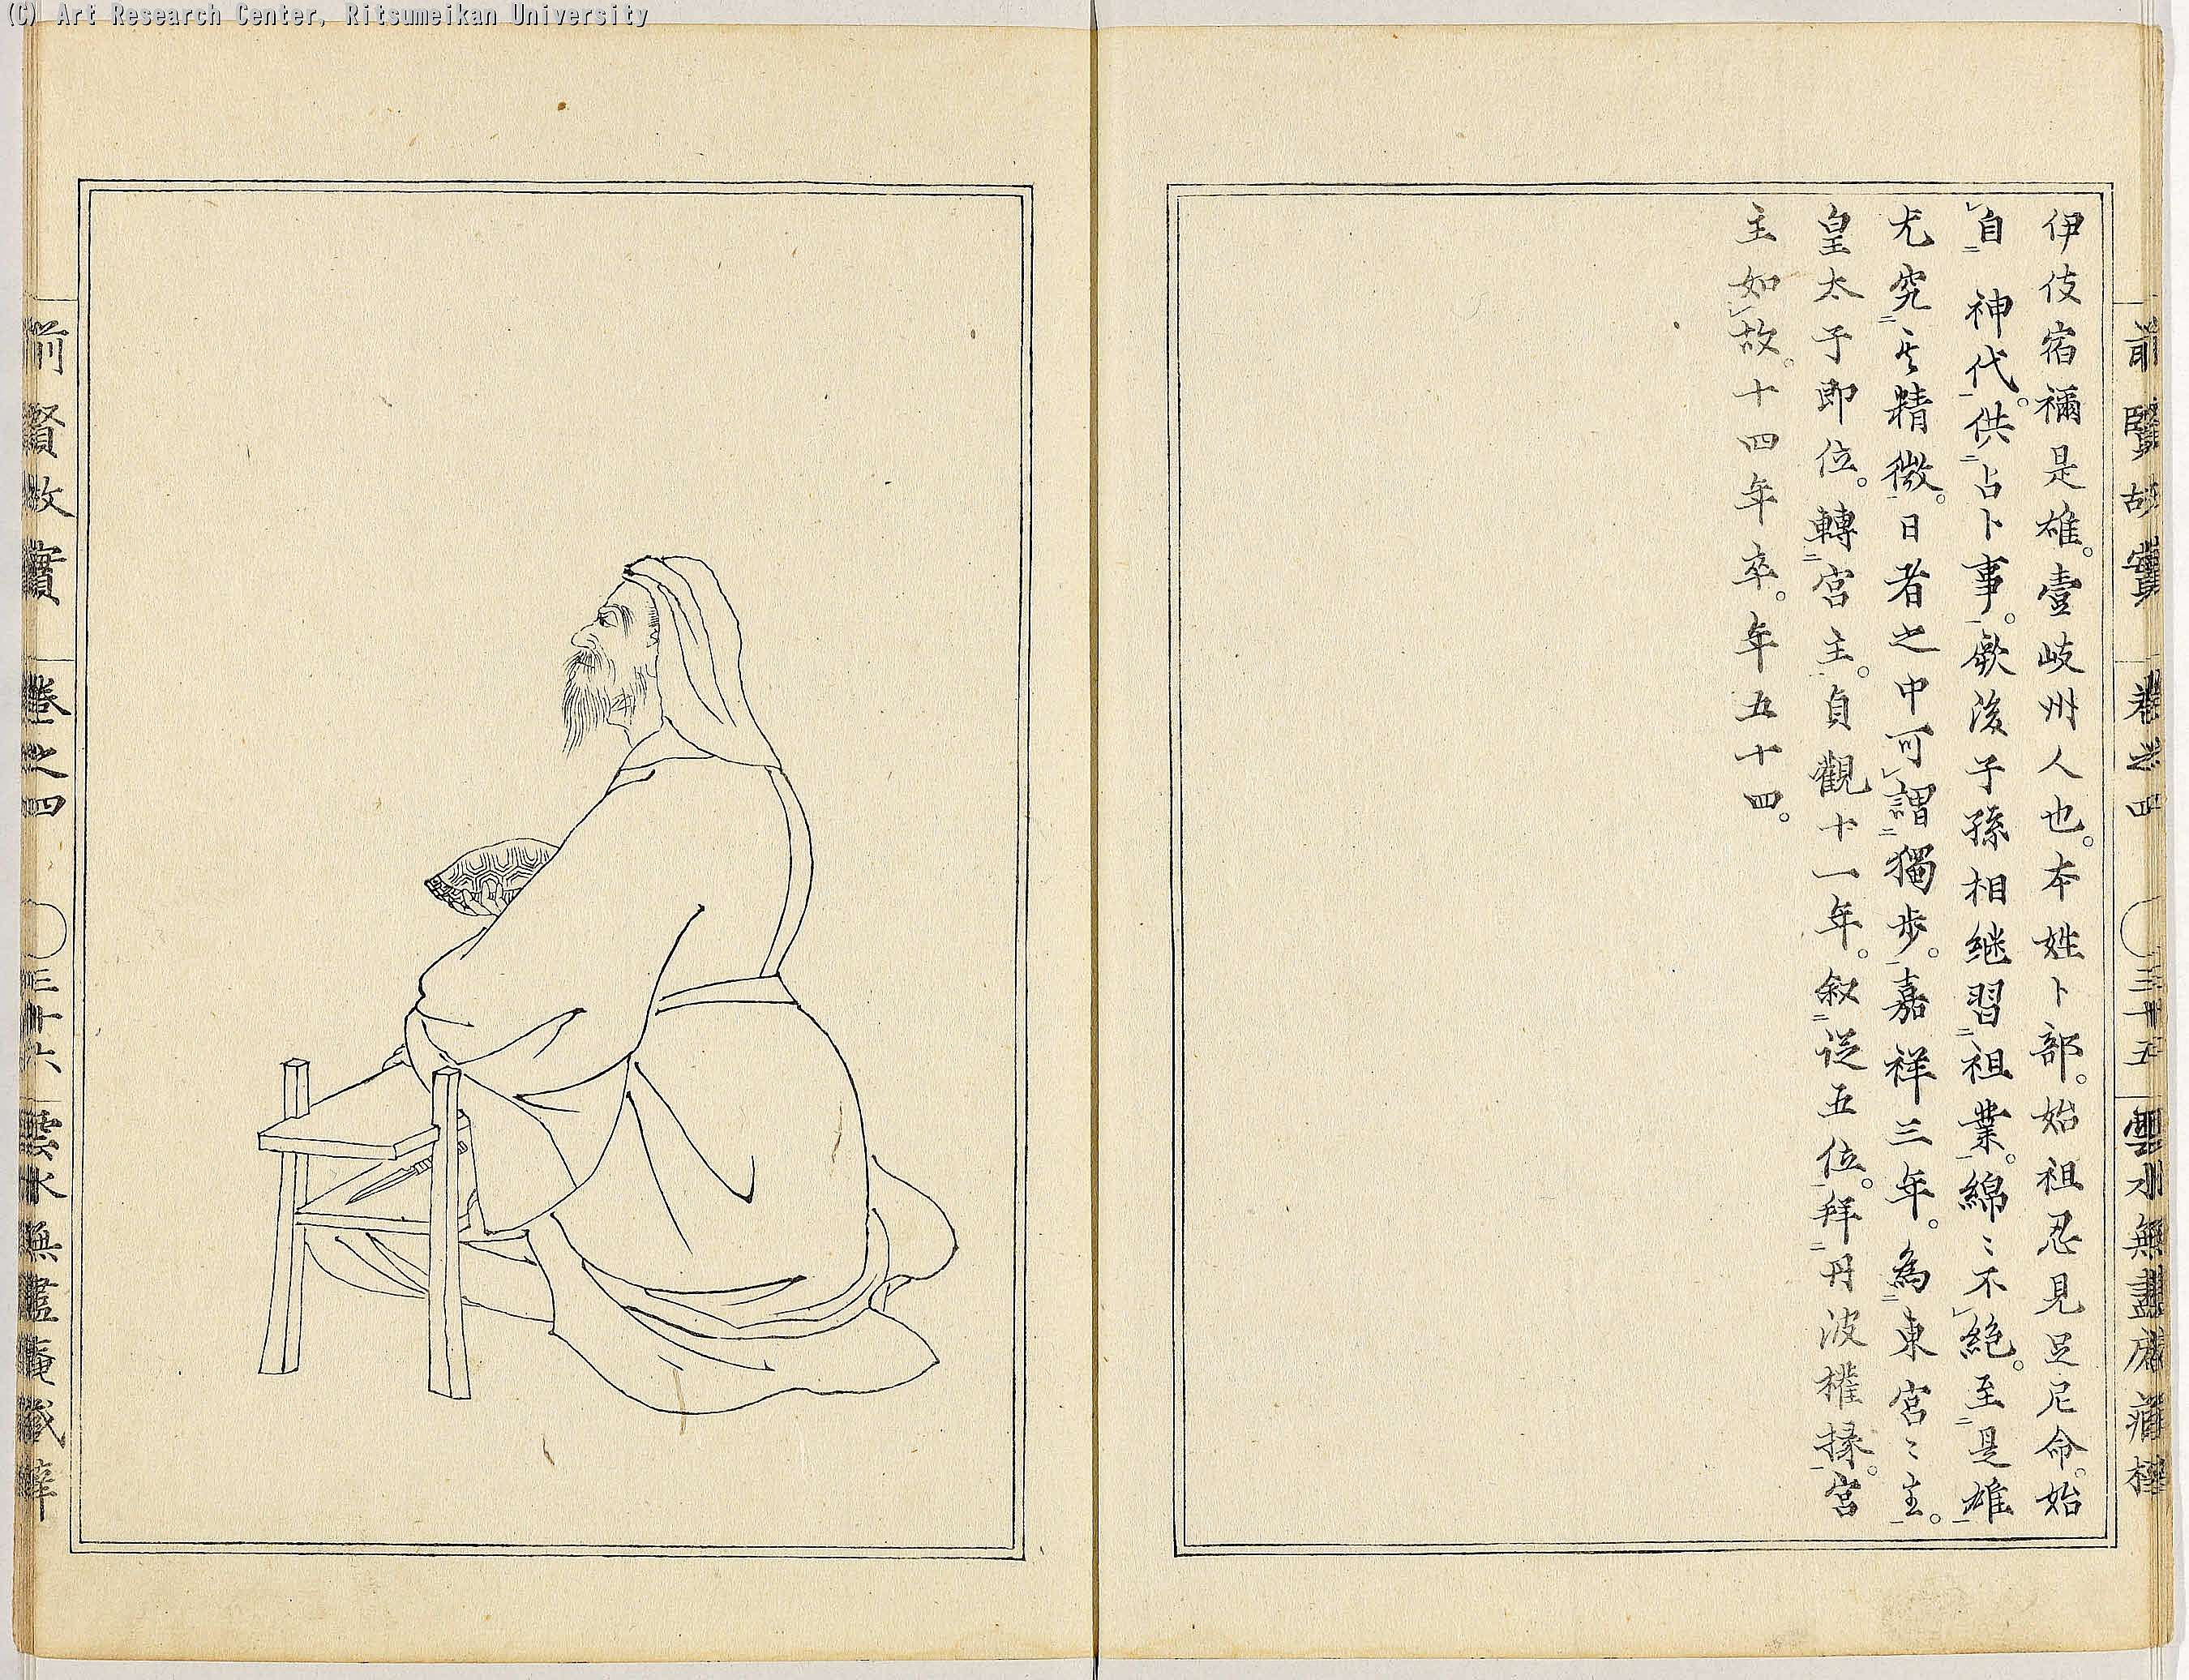 (C) Art Research Center, Ritsumeikan University
前賢故實 卷之四 〇三十五 雲水無盡庵藏梓
伊伎宿禰是雄。壹岐州人也。本姓卜部。始祖忍見足尼命。始
自二 神代一。供二占卜事一。厥後子孫相継習二祖業一。綿〻不レ絶。至二是雄一
尤究二其精微一。日者之中可レ謂二獨歩一。嘉祥三年。為二東宮〻主一。
皇太子即位。轉二宮主一。貞觀十一年。叙二従五位一。拜二丹波權掾一。宮
主如レ故。十四年卒。年五十四。
前賢故實 卷之四 〇三十六 雲水無盡庵藏梓